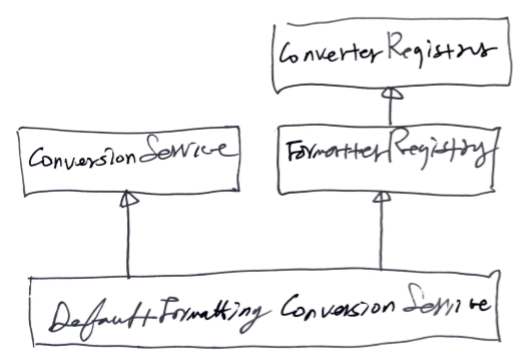 ConverterRegistry
ConversionService
FormatterRegistry
DefaultFormatting ConversionService